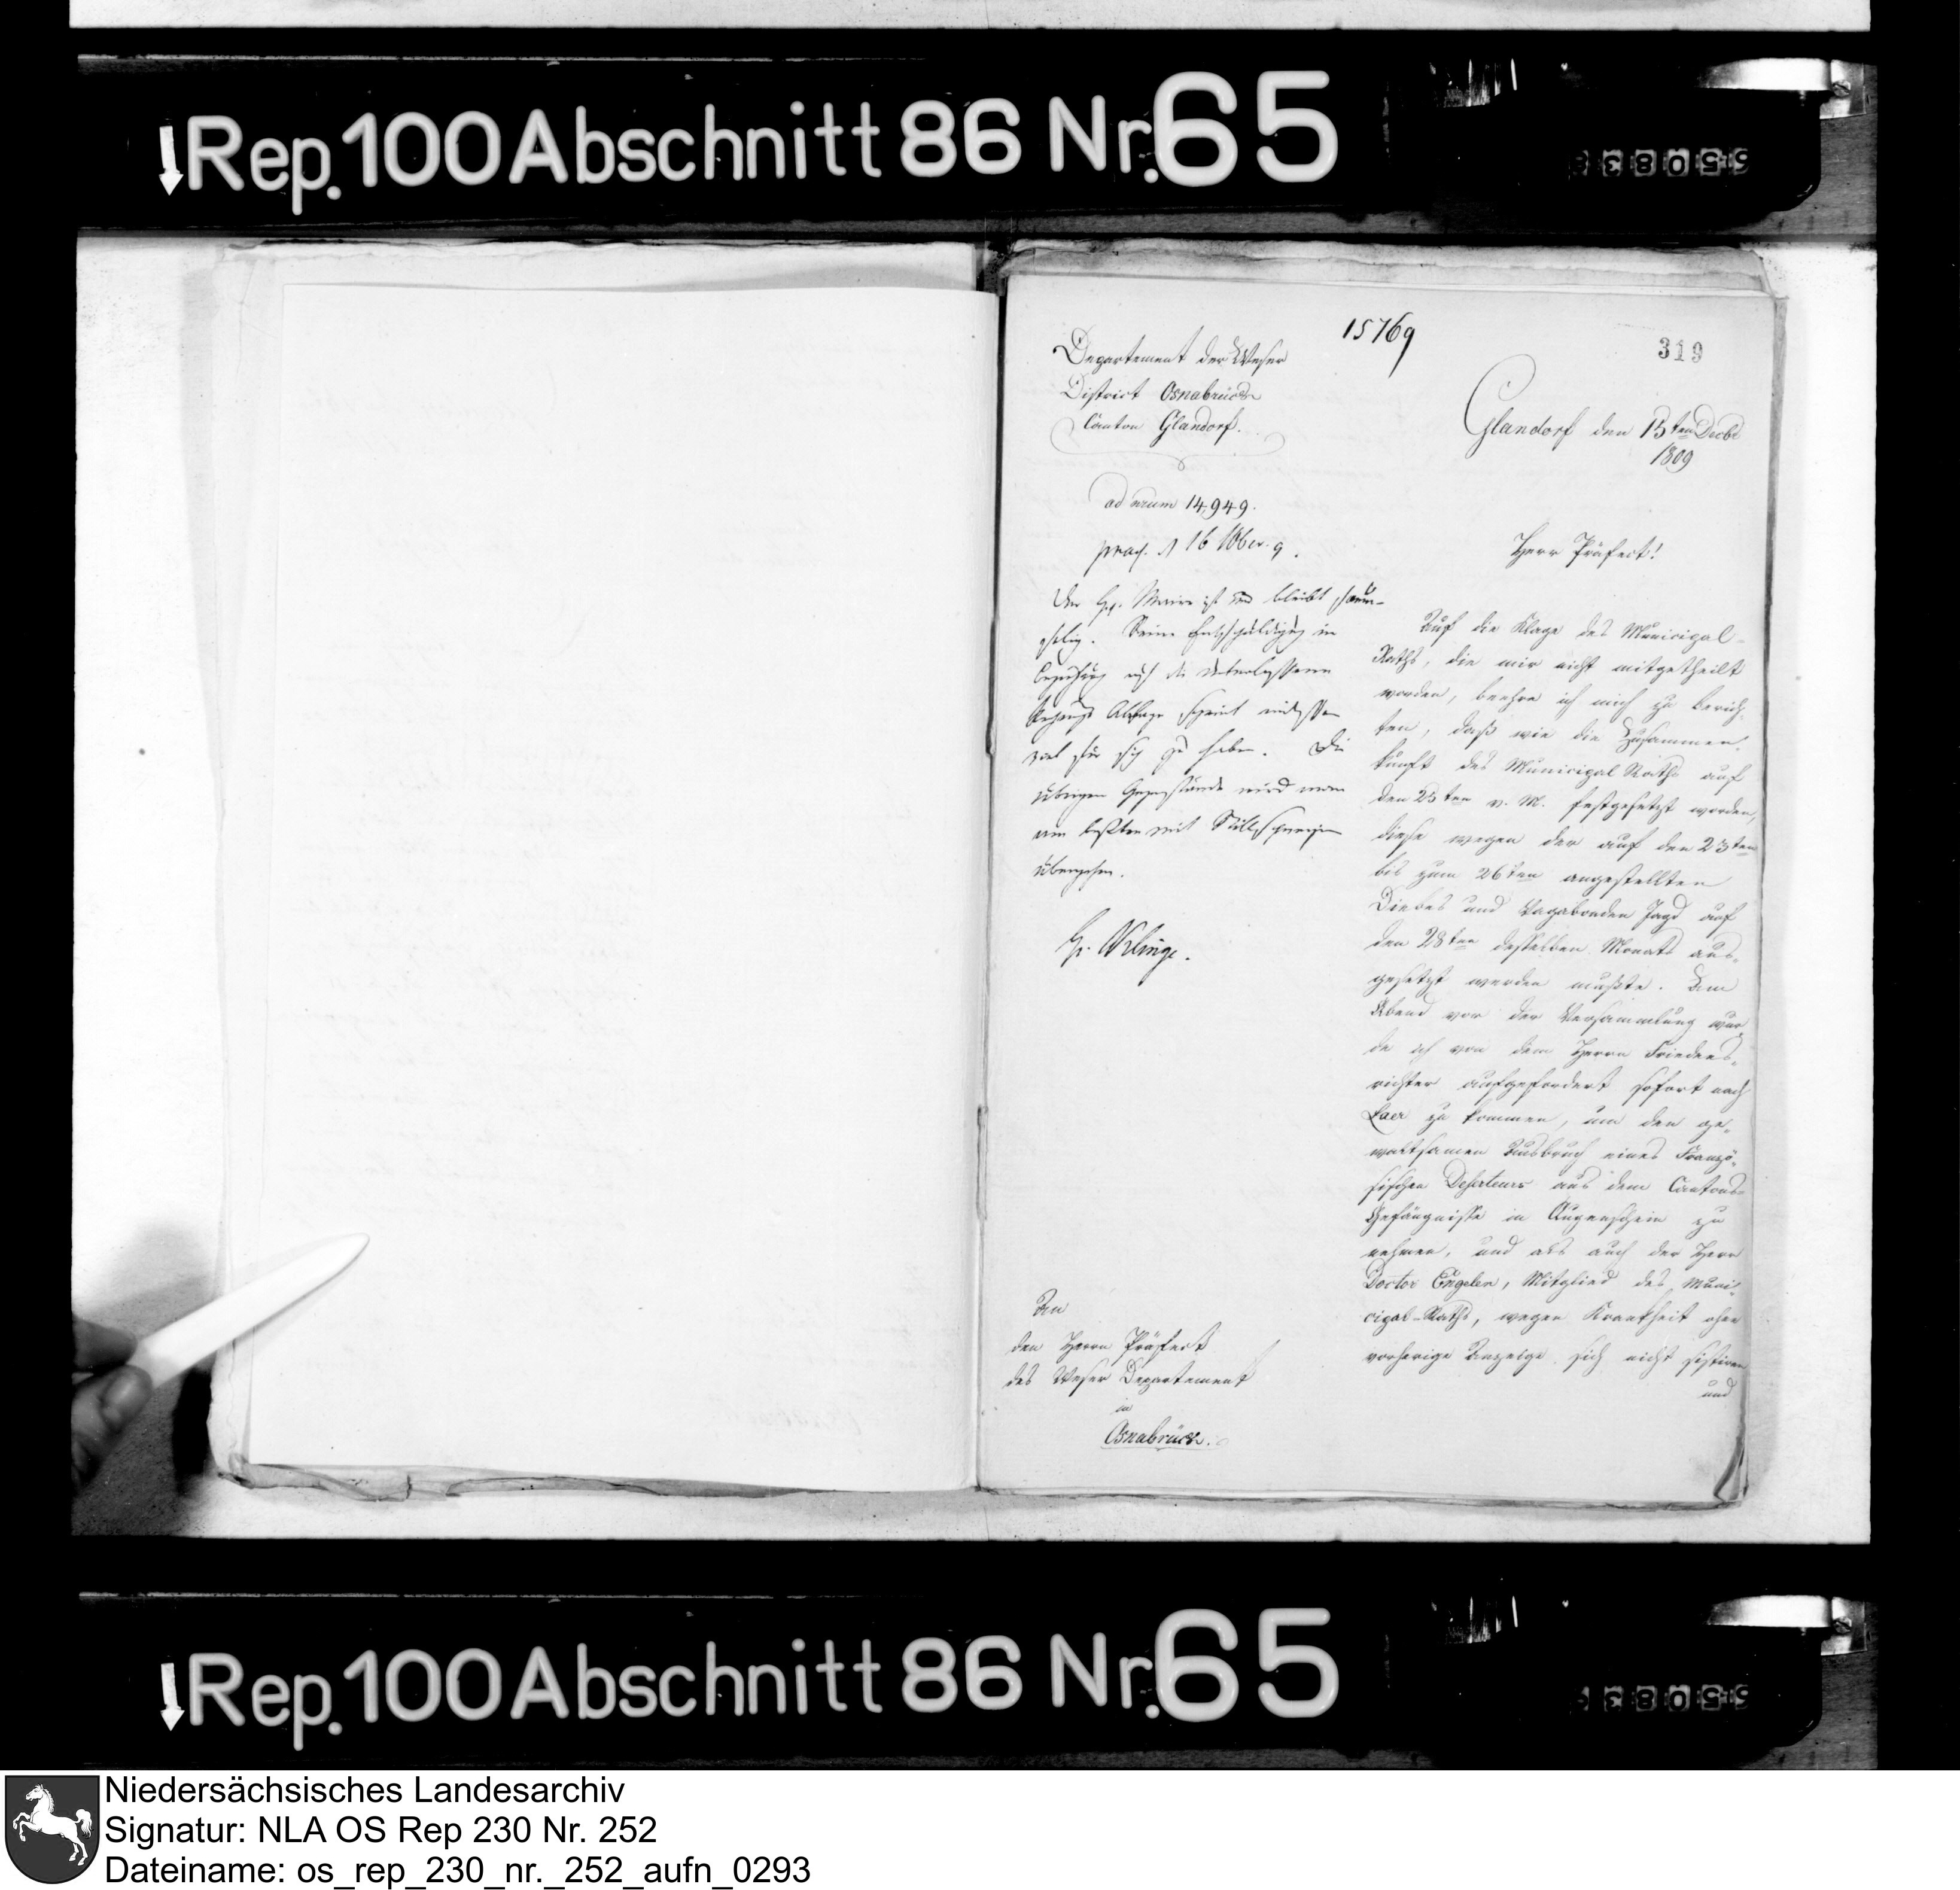 Rep. 100 Abschnitt 86 Nr. 65
15769
319
Departement der Weser
District Osnabrück
Canton Glandorf.
Glandorf den 15ten Decbr
1809
ad num 14,949.
praes. d 16 10ber. 9.
Herr Präfect!
Der Hr. Maire ist und bleibt saum-
selig. Seine Entschuldigung in
Beziehung auf die unterlassene
Abfuhr scheint indessen
viel für sich zu haben. Die
übrigen Gegenstände wird man
am besten mit Stillschweigen
übergehen.
Hr. Klinge.
Auf die Klage des Municipal-
Raths, die mir nicht mitgetheilt
worden, beehre ich mich zu berich-
ten, daß wie die Zusammen-
kunft des Municipal Raths auf
den 25ten v. M. festgesetzt worden,
diese wegen der auf den 25ten
bis zum 26ten angestellten
Diebes und Vagabonden Jagd auf
den 28ten desselben Monats aus-
gesetzt werden mußte. Am
Abend vor der Versammlung wur-
de ich von dem Herrn Friedens-
richter aufgefordert sofort nach
Laer zu kommen, um den ge-
waltsamen Ausbruch eines Franzö-
sischen Deserteurs aus dem Cantons-
Gefängnisse in Augenschein zu
nehmen, und als auch der Herr
Doctor Engelen, Mitglied des Muni-
cipal-Raths, wegen Krankheit ohne
vorherige Anzeige sich nicht sistiren
und
An
den Herrn Präfect
des Weser Departement
in
Osnabrück.
Rep. 100 Abschnitt 86 Nr. 65
Niedersächsisches Landesarchiv
Signatur: NLA OS Rep 230 Nr. 252
Dateiname: os_rep_230_nr._252_aufn_0293